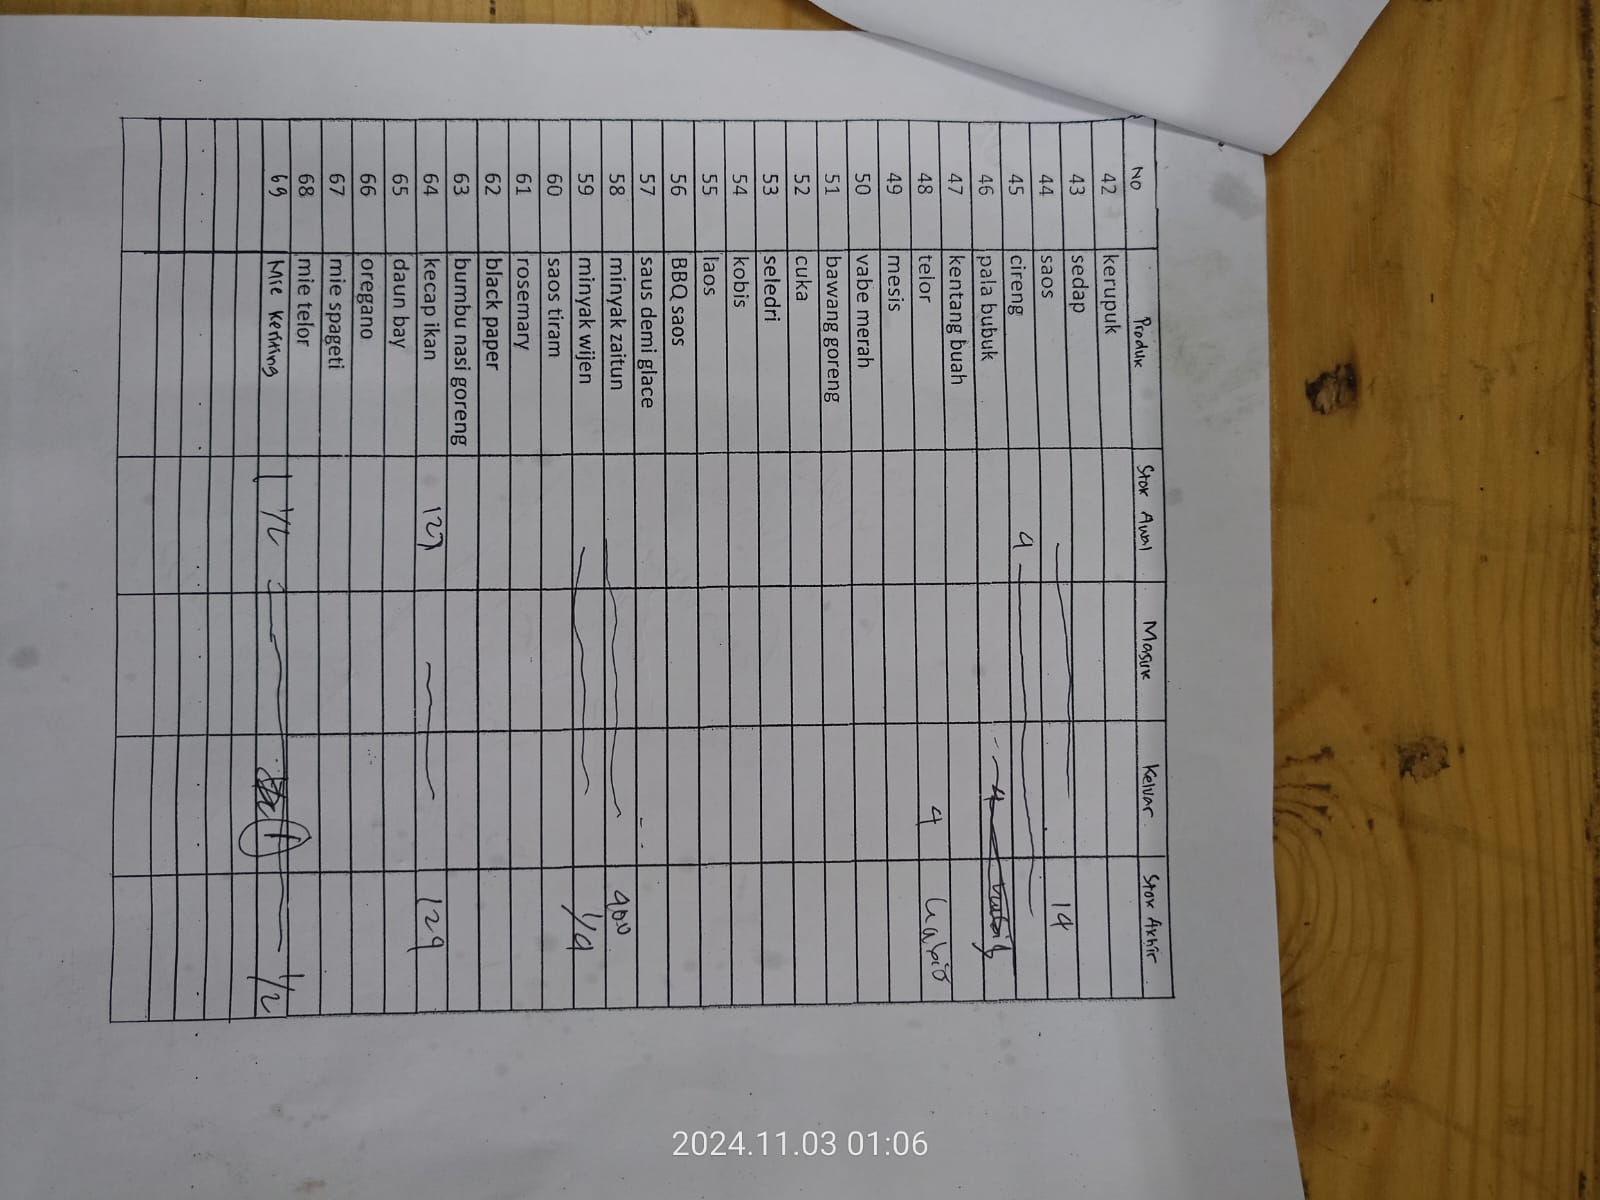 NO Produk Stok Awal Masuk Keluar Stok Akhir
42 kerupuk
43 sedap
44 saos 14
45 cireng 4
46 pala bubuk 4
47 kentang buah
48 telor 4 habis
49 mesis
50 vabe merah
51 bawang goreng
52 cuka
53 seledri
54 kobis
55 laos
56 BBQ saos
57 saus demi glace
58 minyak zaitun 900
59 minyak wijen 1/4
60 saos tiram
61 rosemary
62 black paper
63 bumbu nasi goreng
64 kecap ikan 129
65 daun bay
66 oregano
67 mie spageti
68 mie telor
69 Mie Keriting 1 1/2 1 1/2
2024.11.03 01:06